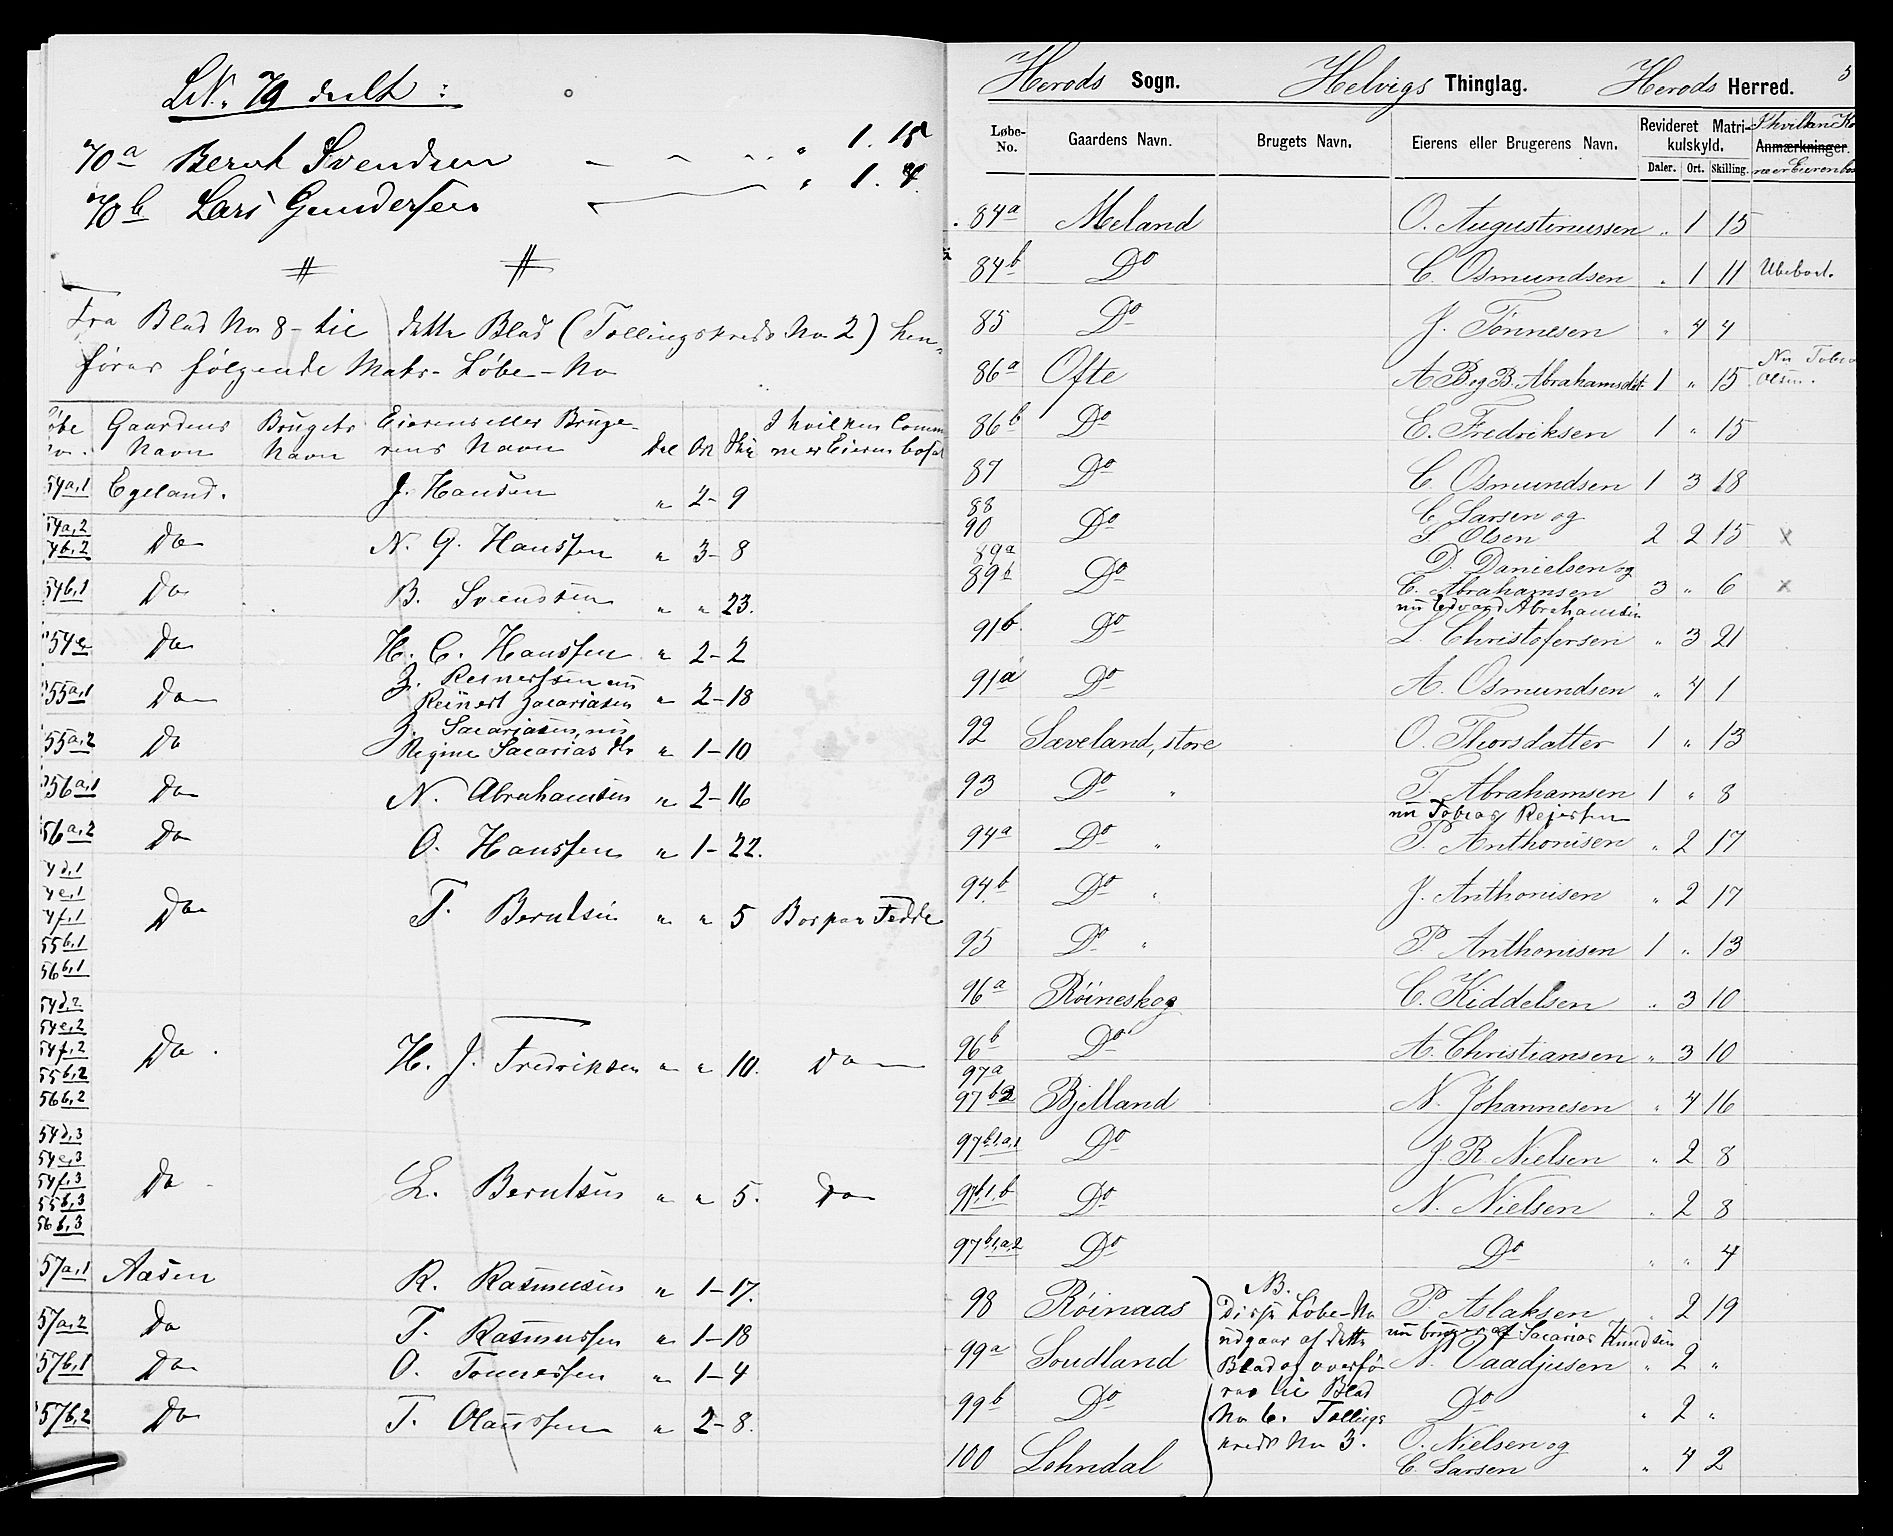 LN. 70 deelt:
70a Bernt Svendsen - - - " 1. 15
70b Lars Gundersen " 1. 4.
# #
Fra Blad No 8 - til dette Blad (Tællingskreds No 2) hen-
føres følgende Matr- Løbe-No
Gaardens Navn Brugets Navn Eierens eller Brugerens Navn Dal Ort Skil I hvilken Comm
54a,1 Egeland. J. Hansen " 2- 9
54a,2 4b,2 Do N. G. Hanssen " 3- 8
54b,1 Do B. Svendsen " " 23.
54c Do H. C. Hanssen " 2- 2
55a,1 Do Z. Reinertsen nu
Reinert Zacariasen " 2- 18
55a,2 Do Z. Sacariasen, nu
Regine Sacarias dtr " 1- 10
56a,1 Do N. Abrahamsen " 2- 16
56a,2 Do O. Hanssen " 1- 22.
4d,1
4e,1
4f,1 Do T. Berntsen " " 5 Bor paa Fedde
55b,1
56b,1
54d,2
54e,2
54f,2 Do H. J. Fredriksen " " 10. Do
55b,2
56b,2
54d,3
54e,3
54f,3 Do L. Berntsen " " 5. Do
55b,3
56b,3
57a,1 Aasen R. Rasmusen " 1- 17.
57a,2 Do T. Rasmussen " 1- 18
57b,1 Do O. Tønnessen " 1- 4
57b,2 Do T. Olaussen " 2- 8.
Herøds Sogn. Helvigs Thinglag. Herøds Herred. 5
Løbe-No. Gaardens Navn. Brugets Navn. Eierens eller Brugerens Navn. Revideret Matrikulskyld. Anmærkninger.
Daler. Ort. Skilling.
84a Meland O. Augustinussen " 1 15
84b Do C. Osmundsen " 1 11 Ubeboet.
85 Do J. Tønnesen " 4 4
86a Ofte A B og B. Abrahamsdtr 1 " 15 Nu Tobias Olsen.
86b Do E. Fredriksen 1 " 15
87 Do C. Osmundsen 1 3 18
88 C. Larsen og
90 Do T. Olsen 2 2 15 x
89a D. Danielsen og
89b Do C. Abrahamsen 3 " 6 x
nu Edvard Abrahamsen
91b Do L. Christofersen " 3 21
91a Do A. Osmundsen " 4 1
92 Sæveland, store O. Thorsdatter 1 " 13
93 Do " T. Abrahamsen 1 " 8
nu Tobias Rejersen
94a Do " P. Anthonisen " 2 17
94b Do " J. Anthonisen " 2 17
95 Do " P. Anthonisen 1 " 13
96a Røineskog C. Kiddelsen " 3 10
96b Do A. Christiansen " 3 10
97a
97b2 Bjelland N. Johannesen " 4 16
97b,1,a,1 Do J. R. Nielsen " 2 8
97b,1,b Do N. Nielsen " 2 8
97b,1,a,2 Do Do " " 4
98 Røinaas P. Aslaksen " 2 19
nu bruger af Sacarias Knudsen
99a Soudland N. Vaadjusen " 2 "
99b Do Do " 2 "
100 Lohndal O. Nielsen og
C. Larsen " 4 2
NB.
Disse Løbe-No
udgaar af dette
Blad og overfø-
res til Blad
No 6. Tællings
kreds No 3.